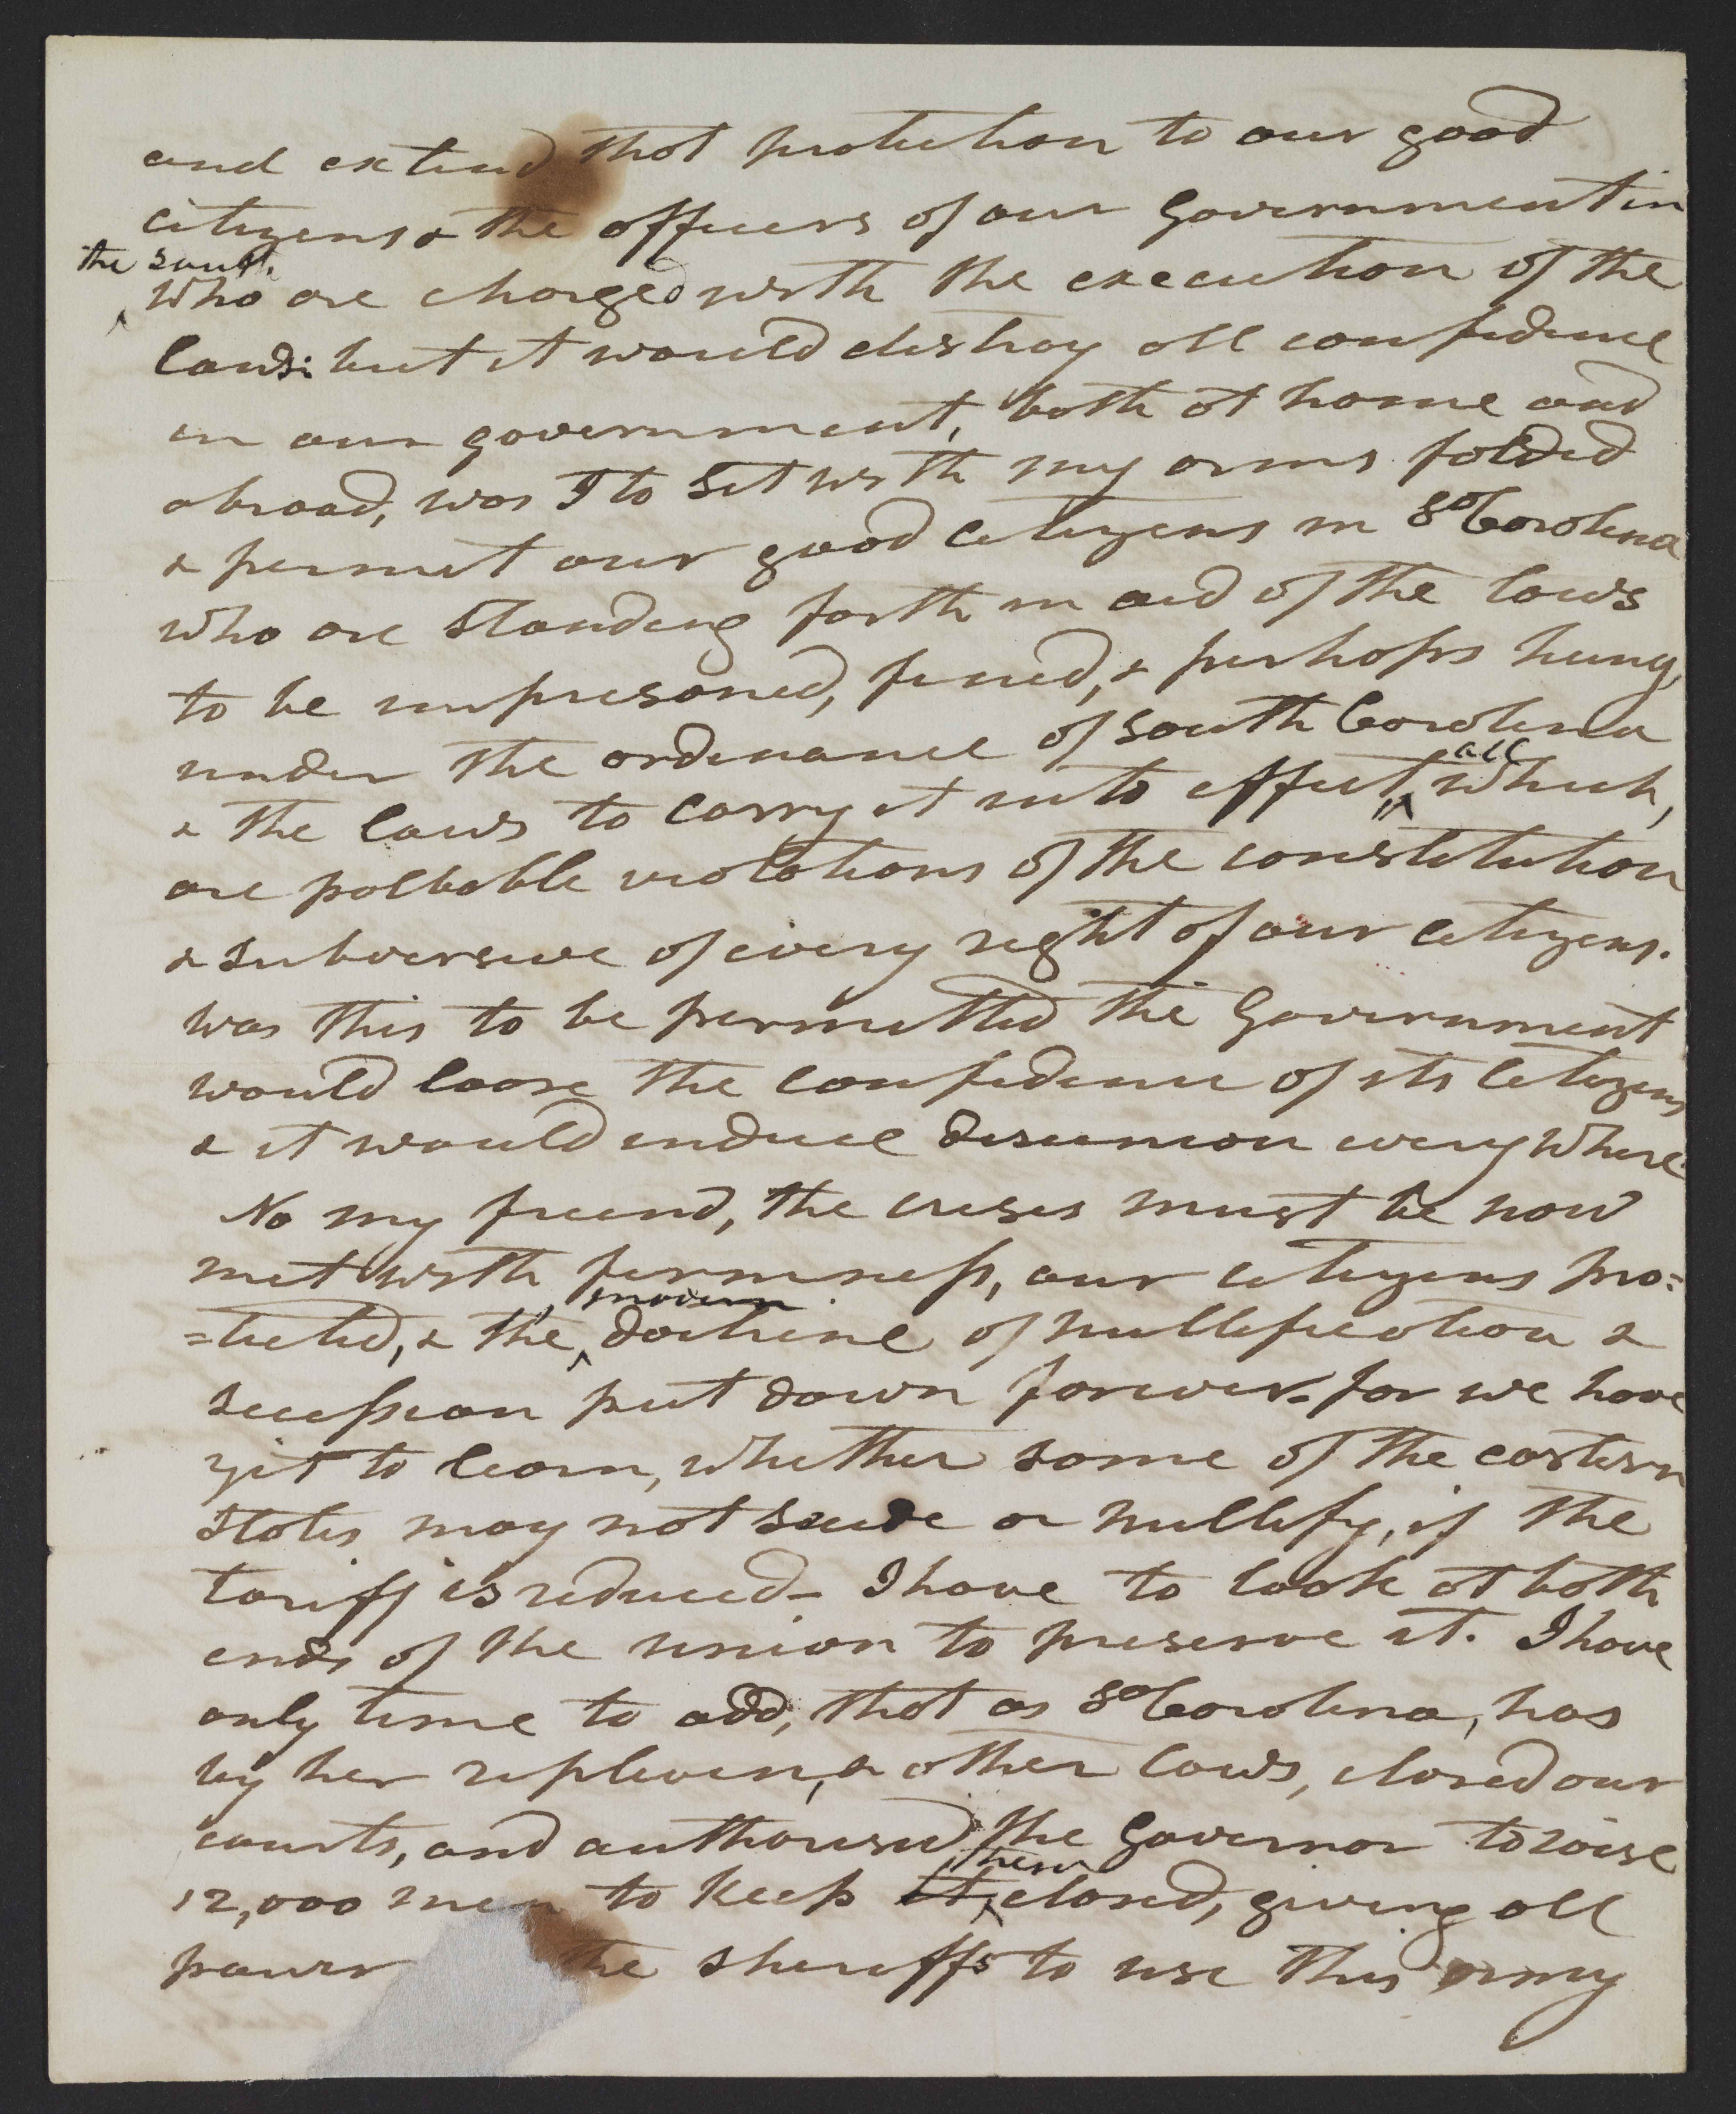 and extend that protection to our good
citizens & the officers of our Government in
the south.
who are charged with the execution of the
laws: but it would destroy all confidence
in our government, both at home and
abroad, was I to set with my arms folded
& permit our good citizens in So Carolina
who are standing forth in aid of the laws
to be imprisoned, fined, & perhaps hung,
under the ordinance of South Carolina
all
& the laws to carry it into effect, which,
are palbable violations of the constitution
& subversive of every right of our citizens.
was this to be permitted the Government
would loose the confidence of its citizens
& it would induce disunion every where
No my friend, the crises must be now
met with firmness, our citizens pro=
modern
=tected, & the doctrine of nullification &
secession put down forever. for we have
yet to learn, whether some of the eastern
states may not secede or nullify, if the
tariff is reduced- I have to look at both
ends of the union to preserve it. I have
only time to add, that as So Carolina, has
by her replevin, & other laws, closed our
courts, and authorised the Governor to raise
them
12,000 men to keep it, closed, giving all
power the sheriffs to use this army